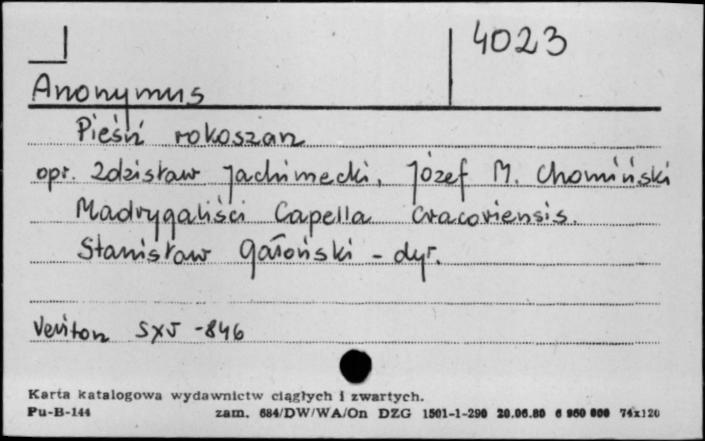 4023
Anonymus
Pieśń rokoszan
opr. Zdzisław Jachimecki, Józef M. Chomiński
Madrygaliści Capella Cracoviensis.
Stanisław Gałoński - dyr.
Veriton SXV -846
Karta katalogowa wydawnictw ciągłych i zwartych.
Pu-B-144 zam. 684/DW/WA/On DZG 1501-1-290 20.06.80 6 960 000 74x120